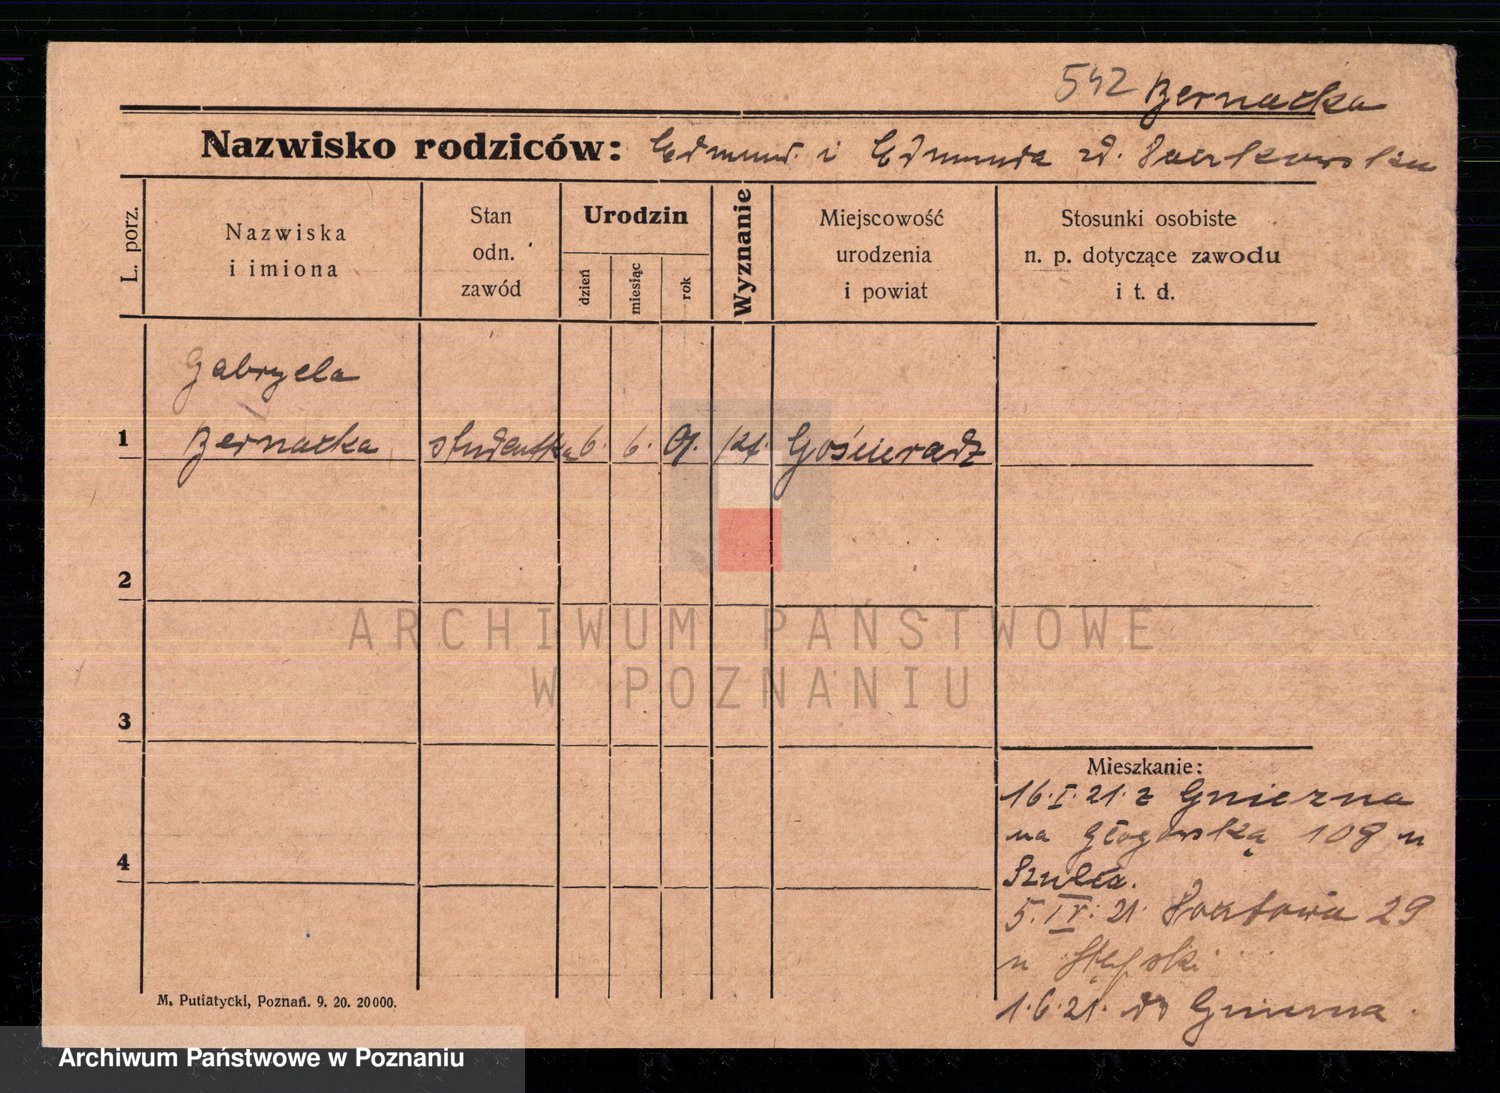 542 Bernacka
Nazwisko rodziców: Edmund i Edmunda zd.
L. porz.
Nazwiska
i imiona
Stan
odn.
zawód
Urodzin
dzień
miesiąc
rok
Wyznanie
Miejscowość
urodzenia
i powiat
Stosunki osobiste
n. p. dotyczące zawodu
i t. d.
Gabryela
1 Bernacka studentka 6. 6. 01. rzk. Gościeradz
2
3
4
Mieszkanie:
16.I.21. z Gniezna
na Głogowską 108 u
Szulca.
5.IV.21. Pocztowa 29
u
1.6.21. do Gniezna.
M. Putiatycki, Poznań. 9. 20. 20000.
ARCHIWUM PAŃSTWOWE
W POZNANIU
Archiwum Państwowe w Poznaniu